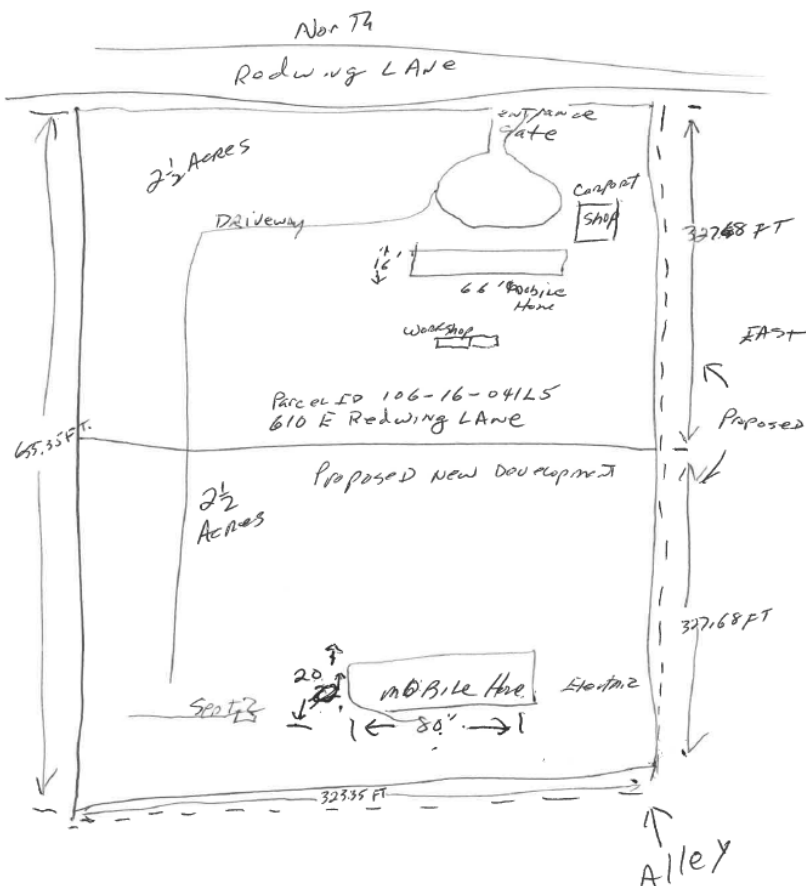 North
Redwing LANe
ENTRANCE
Gate
2½ ACRES
Carport
Shop
DRiveway
327.68 FT
16'
66' Mobile
Home
Workshop
EAST
Parcel ID 106-16-041L5
610 E Redwing LANe
Proposed
655.35 FT.
Proposed New Development
2½
ACRES
327.68 FT
20
MOBiLE Home
Electric
Septic
80'
323.35 FT
Alley